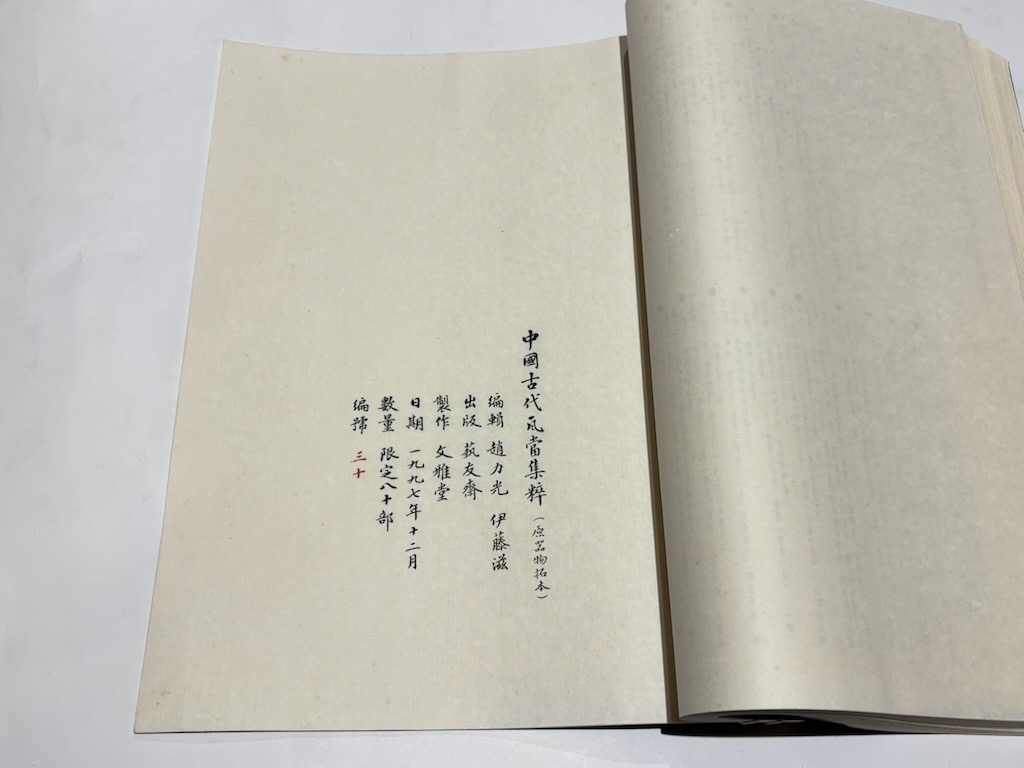 中國古代瓦當集粹（原器物拓本）
編輯 趙力光 伊藤滋
出版 藝友齋
製作 文雅堂
日期 一九九七年十二月
數量 限定八十部
編號 三十